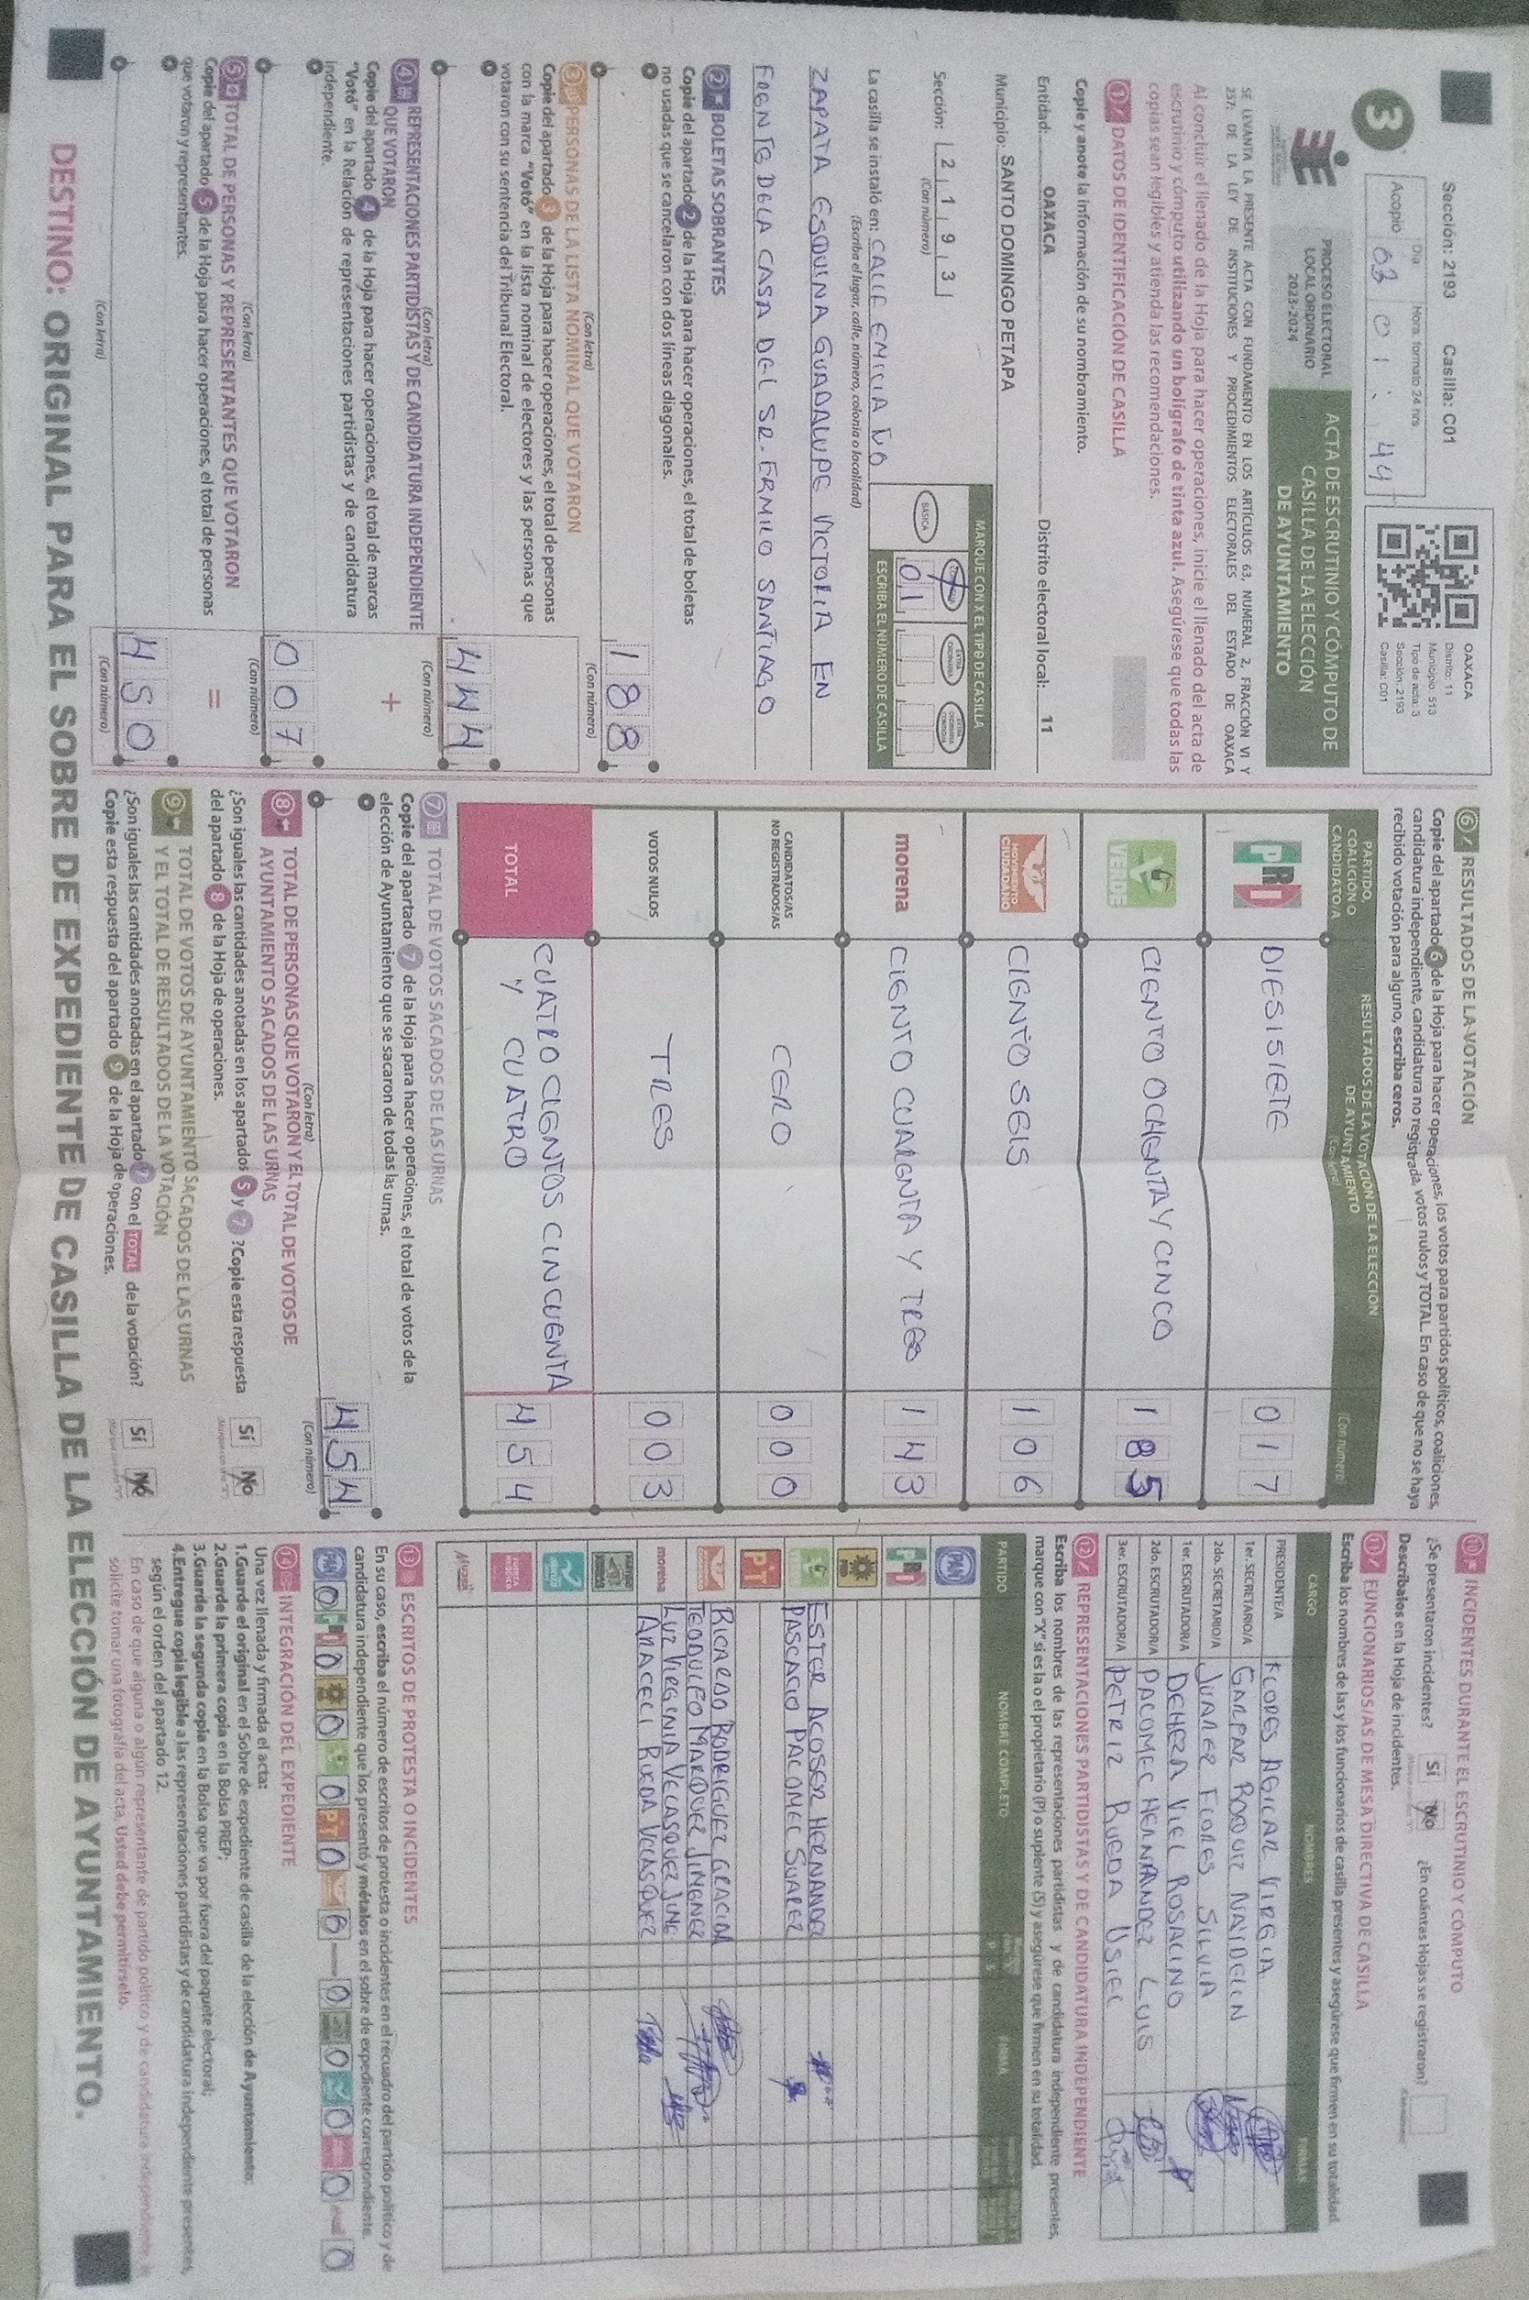 Sección: 2193 Casilla: C01
3
Día
Hora: formato 24 hrs
Acopio 03 01 : 44
OAXACA
Distrito: 11
Municipio: 513
Tipo de acta: 3
Sección: 2193
Casilla: C01
PROCESO ELECTORAL
LOCAL ORDINARIO
2023-2024
ACTA DE ESCRUTINIO Y CÓMPUTO DE
CASILLA DE LA ELECCIÓN
DE AYUNTAMIENTO
SE LEVANTA LA PRESENTE ACTA CON FUNDAMENTO EN LOS ARTÍCULOS 63, NUMERAL 2, FRACCIÓN VI Y
257; DE LA LEY DE INSTITUCIONES Y PROCEDIMIENTOS ELECTORALES DEL ESTADO DE OAXACA
Al concluir el llenado de la Hoja para hacer operaciones, inicie el llenado del acta de
escrutinio y cómputo utilizando un bolígrafo de tinta azul. Asegúrese que todas las
copias sean legibles y atienda las recomendaciones.
1 DATOS DE IDENTIFICACIÓN DE CASILLA
Copie y anote la información de su nombramiento.
Entidad: OAXACA Distrito electoral local: 11
Municipio: SANTO DOMINGO PETAPA
Sección: 2 1 9 3
(Con número)
MARQUE CON X EL TIPO DE CASILLA
BÁSICA
01
ESCRIBA EL NÚMERO DE CASILLA
La casilla se instaló en: CALLE EMILIANO
(Escriba el lugar, calle, número, colonia o localidad)
ZAPATA ESQUINA GUADALUPE VICTORIA EN
FRENTE DE LA CASA DEL SR. ERMILO SANTIAGO
2 BOLETAS SOBRANTES
Copie del apartado 2 de la Hoja para hacer operaciones, el total de boletas
no usadas que se cancelaron con dos líneas diagonales.
188
(Con letra) (Con número)
3 PERSONAS DE LA LISTA NOMINAL QUE VOTARON
Copie del apartado 3 de la Hoja para hacer operaciones, el total de personas
con la marca "Votó" en la lista nominal de electores y las personas que
votaron con su sentencia del Tribunal Electoral.
444
(Con letra) (Con número)
4 REPRESENTACIONES PARTIDISTAS Y DE CANDIDATURA INDEPENDIENTE
QUE VOTARON
+
Copie del apartado 4 de la Hoja para hacer operaciones, el total de marcas
"Votó" en la Relación de representaciones partidistas y de candidatura
independiente.
007
(Con letra) (Con número)
5 TOTAL DE PERSONAS Y REPRESENTANTES QUE VOTARON
=
Copie del apartado 5 de la Hoja para hacer operaciones, el total de personas
que votaron y representantes.
450
(Con letra) (Con número)
6 RESULTADOS DE LA VOTACIÓN
Copie del apartado 6 de la Hoja para hacer operaciones, los votos para partidos políticos, coaliciones,
candidatura independiente, candidatura no registrada, votos nulos y TOTAL. En caso de que no se haya
recibido votación para alguno, escriba ceros.
PARTIDO,
COALICIÓN O
CANDIDATO/A
RESULTADOS DE LA VOTACIÓN DE LA ELECCIÓN
DE AYUNTAMIENTO
(Con letra)
(Con número)
PRI DIESISIETE 017
VERDE CIENTO OCHENTA Y CINCO 185
MOVIMIENTO CIUDADANO CIENTO SEIS 106
morena CIENTO CUARENTA Y TRES 143
CANDIDATOS/AS
NO REGISTRADOS/AS CERO 000
VOTOS NULOS TRES 003
TOTAL CUATRO CIENTOS CINCUENTA
Y CUATRO 454
7 TOTAL DE VOTOS SACADOS DE LAS URNAS
Copie del apartado 7 de la Hoja para hacer operaciones, el total de votos de la
elección de Ayuntamiento que se sacaron de todas las urnas.
454
(Con letra) (Con número)
8 TOTAL DE PERSONAS QUE VOTARON Y EL TOTAL DE VOTOS DE
AYUNTAMIENTO SACADOS DE LAS URNAS
¿Son iguales las cantidades anotadas en los apartados 5 y 7 ?Copie esta respuesta
del apartado 8 de la Hoja de operaciones.
Sí No
9 TOTAL DE VOTOS DE AYUNTAMIENTO SACADOS DE LAS URNAS
Y EL TOTAL DE RESULTADOS DE LA VOTACIÓN
¿Son iguales las cantidades anotadas en el apartado 7 con el TOTAL de la votación?
Copie esta respuesta del apartado 9 de la Hoja de operaciones.
Sí No
10 INCIDENTES DURANTE EL ESCRUTINIO Y CÓMPUTO
¿Se presentaron incidentes? Sí No ¿En cuántas Hojas se registraron?
Descríbalos en la Hoja de incidentes.
11 FUNCIONARIOS/AS DE MESA DIRECTIVA DE CASILLA
Escriba los nombres de las y los funcionarios de casilla presentes y asegúrese que firmen en su totalidad.
CARGO NOMBRES FIRMAS
PRESIDENTE/A
1er. SECRETARIO/A
2do. SECRETARIO/A JUAREZ FLORES SILVIA
1er. ESCRUTADOR/A DEHEZA VIEL ROSALINO
2do. ESCRUTADOR/A PACOMEC HERNANDEZ LUIS
3er. ESCRUTADOR/A BETRIZ RUEDA USIEL
12 REPRESENTACIONES PARTIDISTAS Y DE CANDIDATURA INDEPENDIENTE
Escriba los nombres de las representaciones partidistas y de candidatura independiente presentes,
marque con "X" si es la o el propietario (P) o suplente (S) y asegúrese que firmen en su totalidad.
PARTIDO NOMBRE COMPLETO FIRMA
PAN
PRI
PRD
ESTER ACOSER HERNANDEZ
PASCACIO PACOMEC SUAREZ
PT
RICARDO RODRIGUEZ GRACIDA
TEODULFO MARQUEZ JIMENEZ
morena LUZ VIRGENIA VELASQUEZ JIME
ARACELI RUEDA VELASQUEZ
13 ESCRITOS DE PROTESTA O INCIDENTES
En su caso, escriba el número de escritos de protesta o incidentes en el recuadro del partido político y de
candidatura independiente que los presentó y métalos en el sobre de expediente correspondiente.
PAN 0 PRI 0 0 0 PT 0 0 0 0 0 0 0
14 INTEGRACIÓN DEL EXPEDIENTE
Una vez llenada y firmada el acta:
1.Guarde el original en el Sobre de expediente de casilla de la elección de Ayuntamiento;
2.Guarde la primera copia en la Bolsa PREP;
3.Guarde la segunda copia en la Bolsa que va por fuera del paquete electoral;
4.Entregue copia legible a las representaciones partidistas y de candidatura independiente presentes,
según el orden del apartado 12.
En caso de que alguna o algún representante de partido político y de candidatura independiente
solicite tomar una fotografía del acta, Usted debe permitírselo.
DESTINO: ORIGINAL PARA EL SOBRE DE EXPEDIENTE DE CASILLA DE LA ELECCIÓN DE AYUNTAMIENTO.